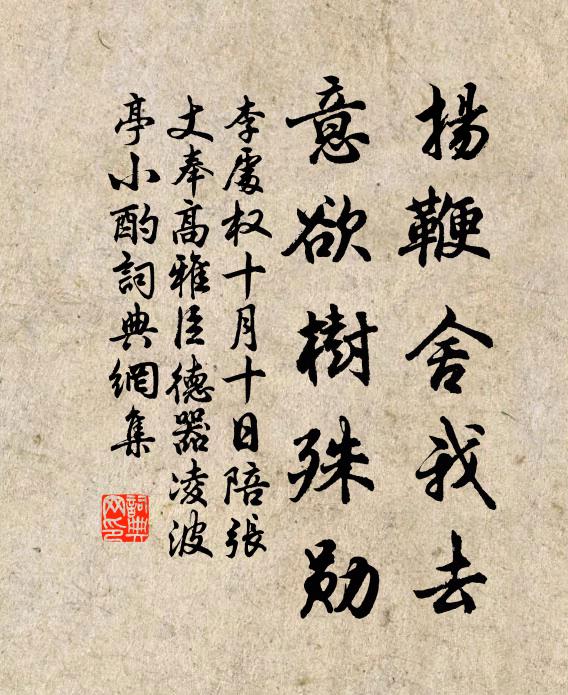 揚鞭舍我去
意欲樹殊勛
李處权十月十日陪張
丈奉高雅臣德器凌波
亭小酌詞典網集
詞典网印